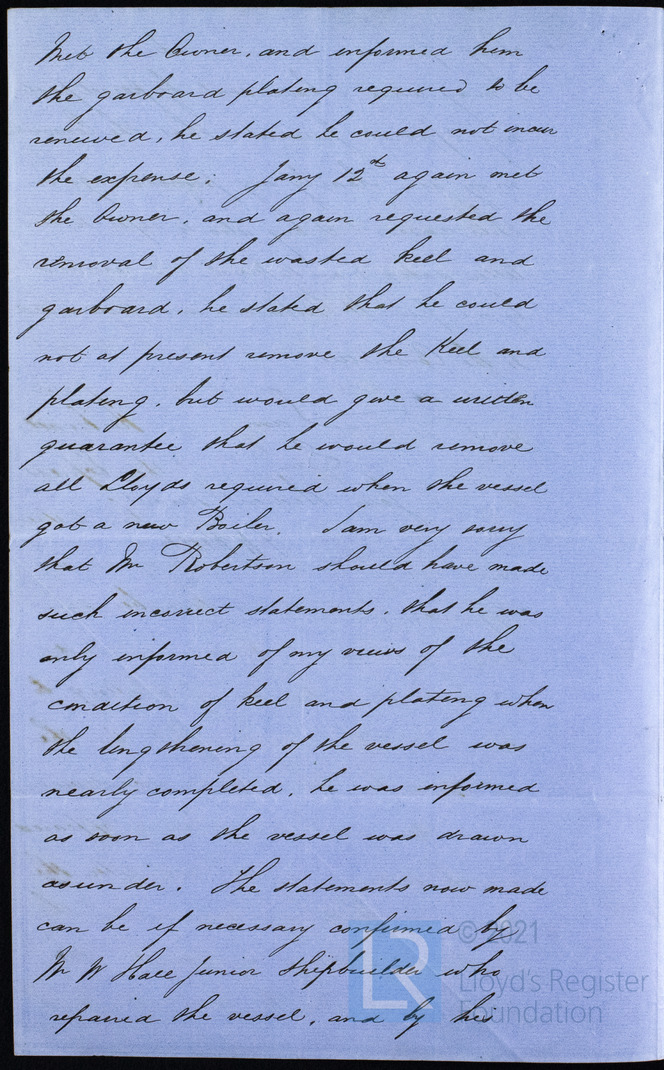 Met the Owner, and informed him
the garboard plating required to be
renewed, he stated he could not incur
the expense; Jany 12th again met
the Owner, and again requested the
removal of the wasted keel and
garboard, he stated that he could
not at present remove the Keel and
plating, but would give a written
guarantee that he would remove
all Lloyds required when the vessel
got a new Boiler. I am very sorry
that Mr Robertson should have made
such incorrect statements, that he was
only informed of my views of the
condition of keel and plating when
the lengthening of the vessel was
nearly completed, he was informed
as soon as the vessel was drawn
asunder. The statements now made
can be if necessary confirmed by
Mr W Hall Junior Shipbuilder who
repaired the vessel, and by his
© 2021
Lloyd's Register
Foundation
LR